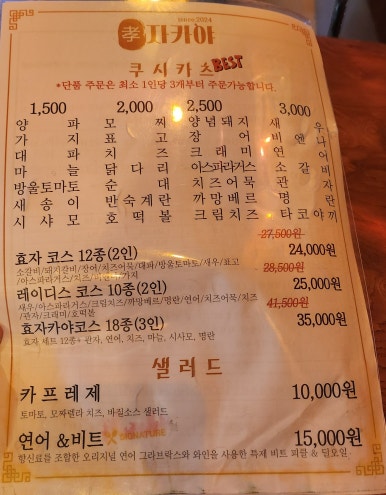 since 2024
孝자카야
쿠시카츠 BEST
*단품 주문은 최소 1인당 3개부터 주문가능합니다.
1,500 2,000 2,500 3,000
양파 모찌 양념돼지 새우
가지 표고 장어 비엔나
대파 치즈 크래미 연어
마늘 닭다리 아스파라거스 소갈비
방울토마토 순대 치즈어묵 관자
새송이 반숙계란 까망베르 명란
시샤모 호떡볼 크림치즈 타코야끼
27,500원
효자 코스 12종(2인) 24,000원
소갈비/돼지갈비/장어/치즈어묵/대파/방울토마토/새우/표고
/아스파라거스/치즈/
28,500원
레이디스 코스 10종(2인) 25,000원
새우/아스파라거스/크림치즈/까망베르/명란/연어/치즈어묵/치즈
/관자/크래미/호떡볼
41,500원
효자카야코스 18종(3인) 35,000원
효자 세트 12종+ 관자, 연어, 치즈, 마늘, 시사모, 명란
샐러드
카프레제 10,000원
토마토, 모짜렐라 치즈, 바질소스 샐러드
연어 &비트 SIGNATURE 15,000원
향신료를 조합한 오리지널 연어 그라브락스와 와인을 사용한 특제 비트 피클 & 딜오일